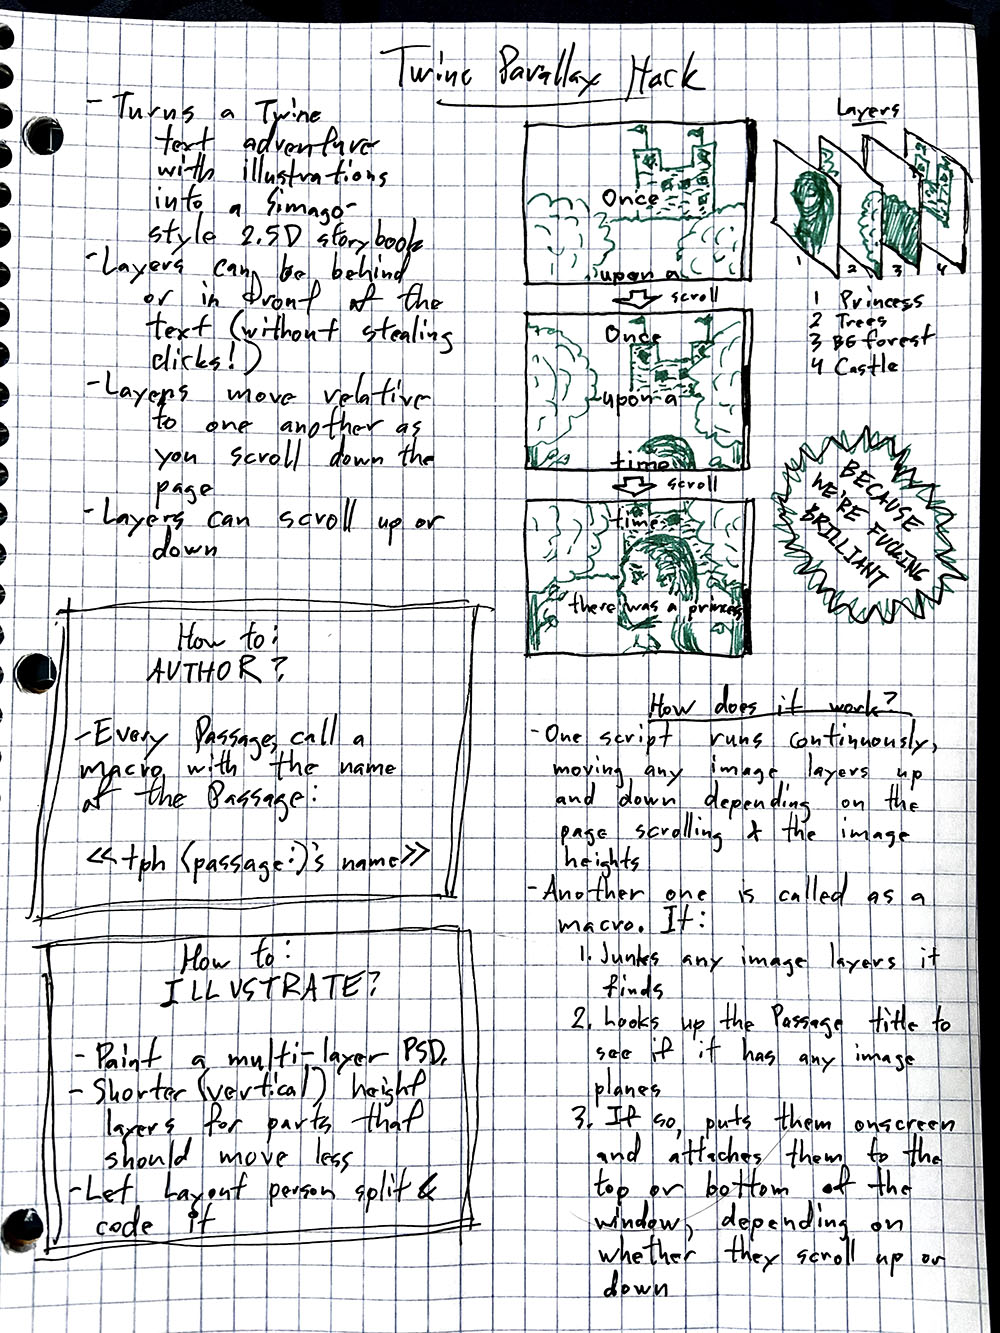 Twine Parallax Hack
- Turns a Twine
text adventure
with illustrations
into a Simogo-
style 2.5D storybook
- Layers can be behind
or in front of the
text (without stealing
clicks!)
- Layers move relative
to one another as
you scroll down the
page
- Layers can scroll up or
down
Once
upon a
scroll
Once
upon a
time
a
scroll
time
there was a princess
Layers
1
2
3
4
1 Princess
2 Trees
3 BG forest
4 Castle
BECAUSE
WE'RE FUCKING
BRILLIANT
How to:
AUTHOR?
- Every Passage, call a
macro with the name
of the Passage:
<<tph (passage:)'s name>>
How to:
ILLUSTRATE?
- Paint a multi-layer PSD.
- Shorter (vertical) height
layers for parts that
should move less
- Let Layout person split &
code it
How does it work?
- One script runs continuously,
moving any image layers up
and down depending on the
page scrolling & the image
heights
- Another one is called as a
macro. It:
1. Junks any image layers it
finds
2. Looks up the Passage title to
see if it has any image
planes
3. If so, puts them onscreen
and attaches them to the
top or bottom of the
window, depending on
whether they scroll up or
down